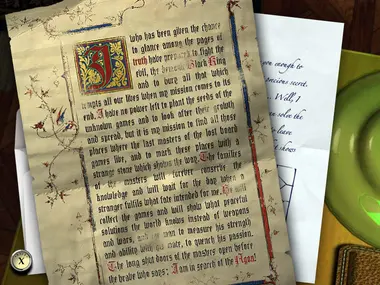 I
who has been given the chance
to glance among the pages of
truth have prepared to fight the
evil, the demonic Black King
and to bury all that which
tempts all our lives when my mission comes to its
end. I have no power left to plant the seeds of the
unknown games and to look after their growth
and spread, but it is my mission to find all those
places where the last masters of the lost board
games live, and to mark these places with a
strange star which shows the way. The families
of the masters will forever conserve the
knowledge and will wait for the day when a
stranger fulfils what fate intended for me. He will
collect the games and will show what peaceful
solutions the world hands instead of weapons
and wars, and for men to measure his strength
and ability with his mate, to quench his passion.
The long shut doors of the masters open before
the brave who says: I am in search of the Agon!
you enough to
precious secret.
Well, I
solve the
to leave
shows
X